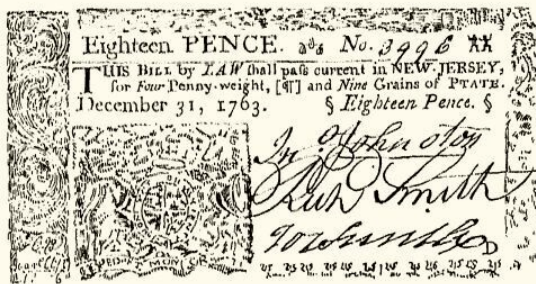 Eighteen PENCE. No. 3996
THIS BILL by LAW shall paſs current in NEW-JERSEY,
for Four Penny-weight, [¶] and Nine Grains of PLATE.
December 31, 1763. § Eighteen Pence. §
Johnston
Rich Smith